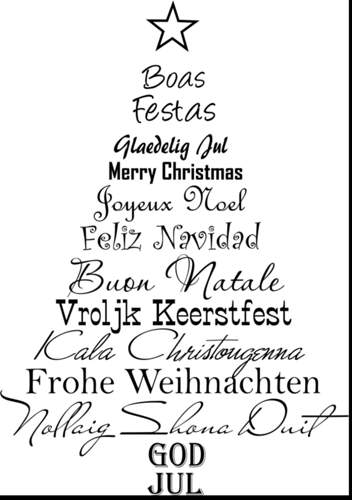 Boas
Festas
Glaedelig Jul
Merry Christmas
Joyeux Noel
Feliz Navidad
Buon Natale
Vroljk Keerstfest
Kala Christougenna
Frohe Weihnachten
Nollaig Shona Duit
GOD
JUL